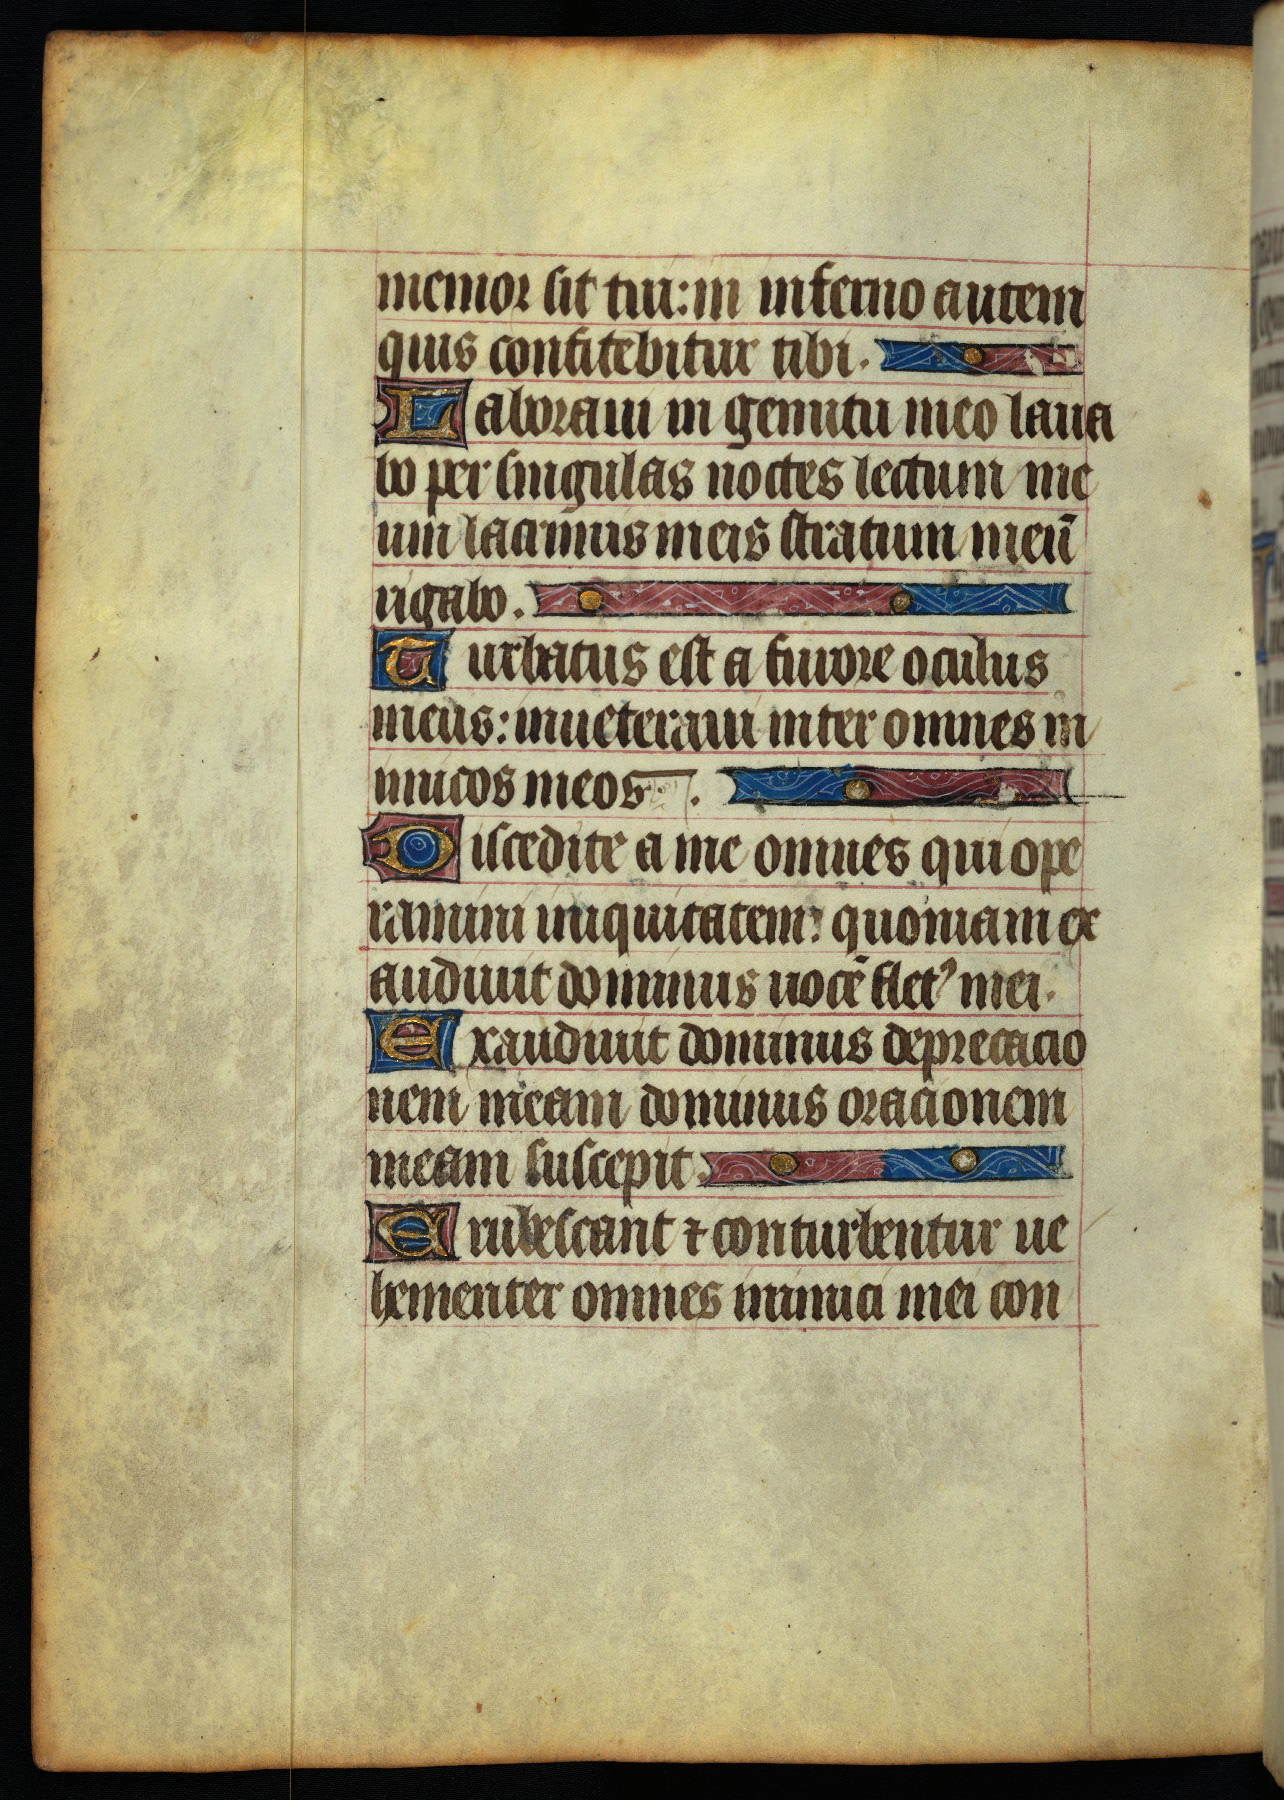 memor sit tui: in inferno autem
quis confitebitur tibi.
Laboraui in gemitu meo laua
bo per singulas noctes lectum me
um lacrimis meis stratum meū
rigabo.
Turbatus est a furore oculus
meus: inueteraui inter omnes in
imicos meos.
Discedite a me omnes qui ope
ramini iniquitatem: quoniam ex
audiuit dominus uocē flet᾿ mei.
Exaudiuit dominus deprecacio
nem meam dominus oracionem
meam suscepit.
Erubescant ⁊ conturbentur ue
hementer omnes inimici mei con